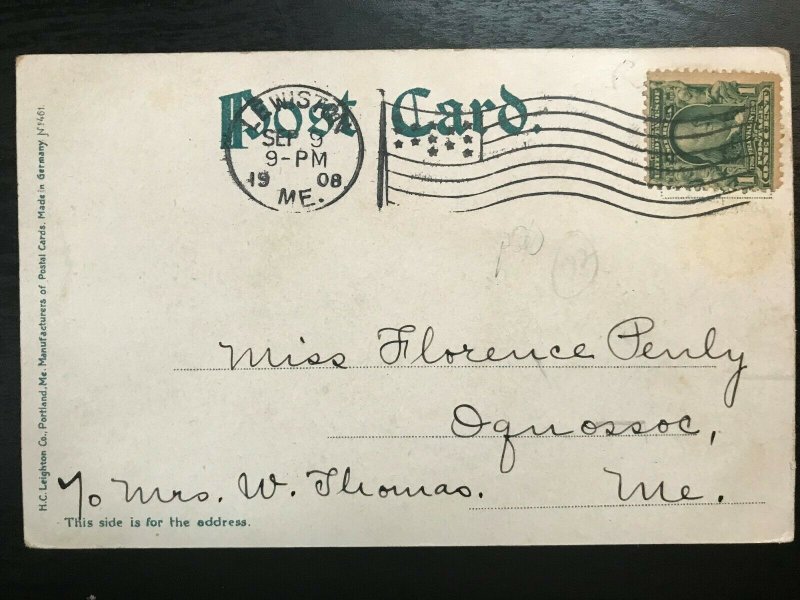 Post Card.
LEWISTON
SEP 9
9-PM
19 08
ME.
Miss Florence Penly
Oquossoc,
Me.
℅ Mrs. W. Thomas.
This side is for the address.
H.C. Leighton Co., Portland, Me. Manufacturers of Postal Cards. Made in Germany. Nº461.
1 1
ONE CENT